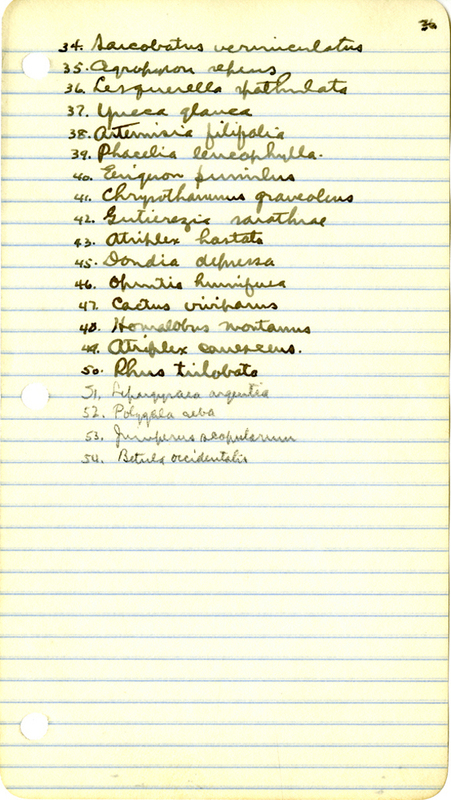 36
34. Sarcobatus vermiculatus
35. Agropyron repens
36. Lesquerella spathulata
37. Yucca glauca
38. Artemisia filifolia
39. Phacelia leucophylla.
40. Erigeron pumilus
41. Chrysothamnus graveolens
42. Gutierezia sarothrae
43. Atriplex hastata
45. Dondia depressa
46. Opuntia humifusa
47. Cactus viviparus
48. Homalobus montanus
49. Atriplex canescens.
50. Rhus trilobata
51. Lepargyraea argentia
52. Polygala alba
53. Juniperus scopulorum
54. Betula occidentalis